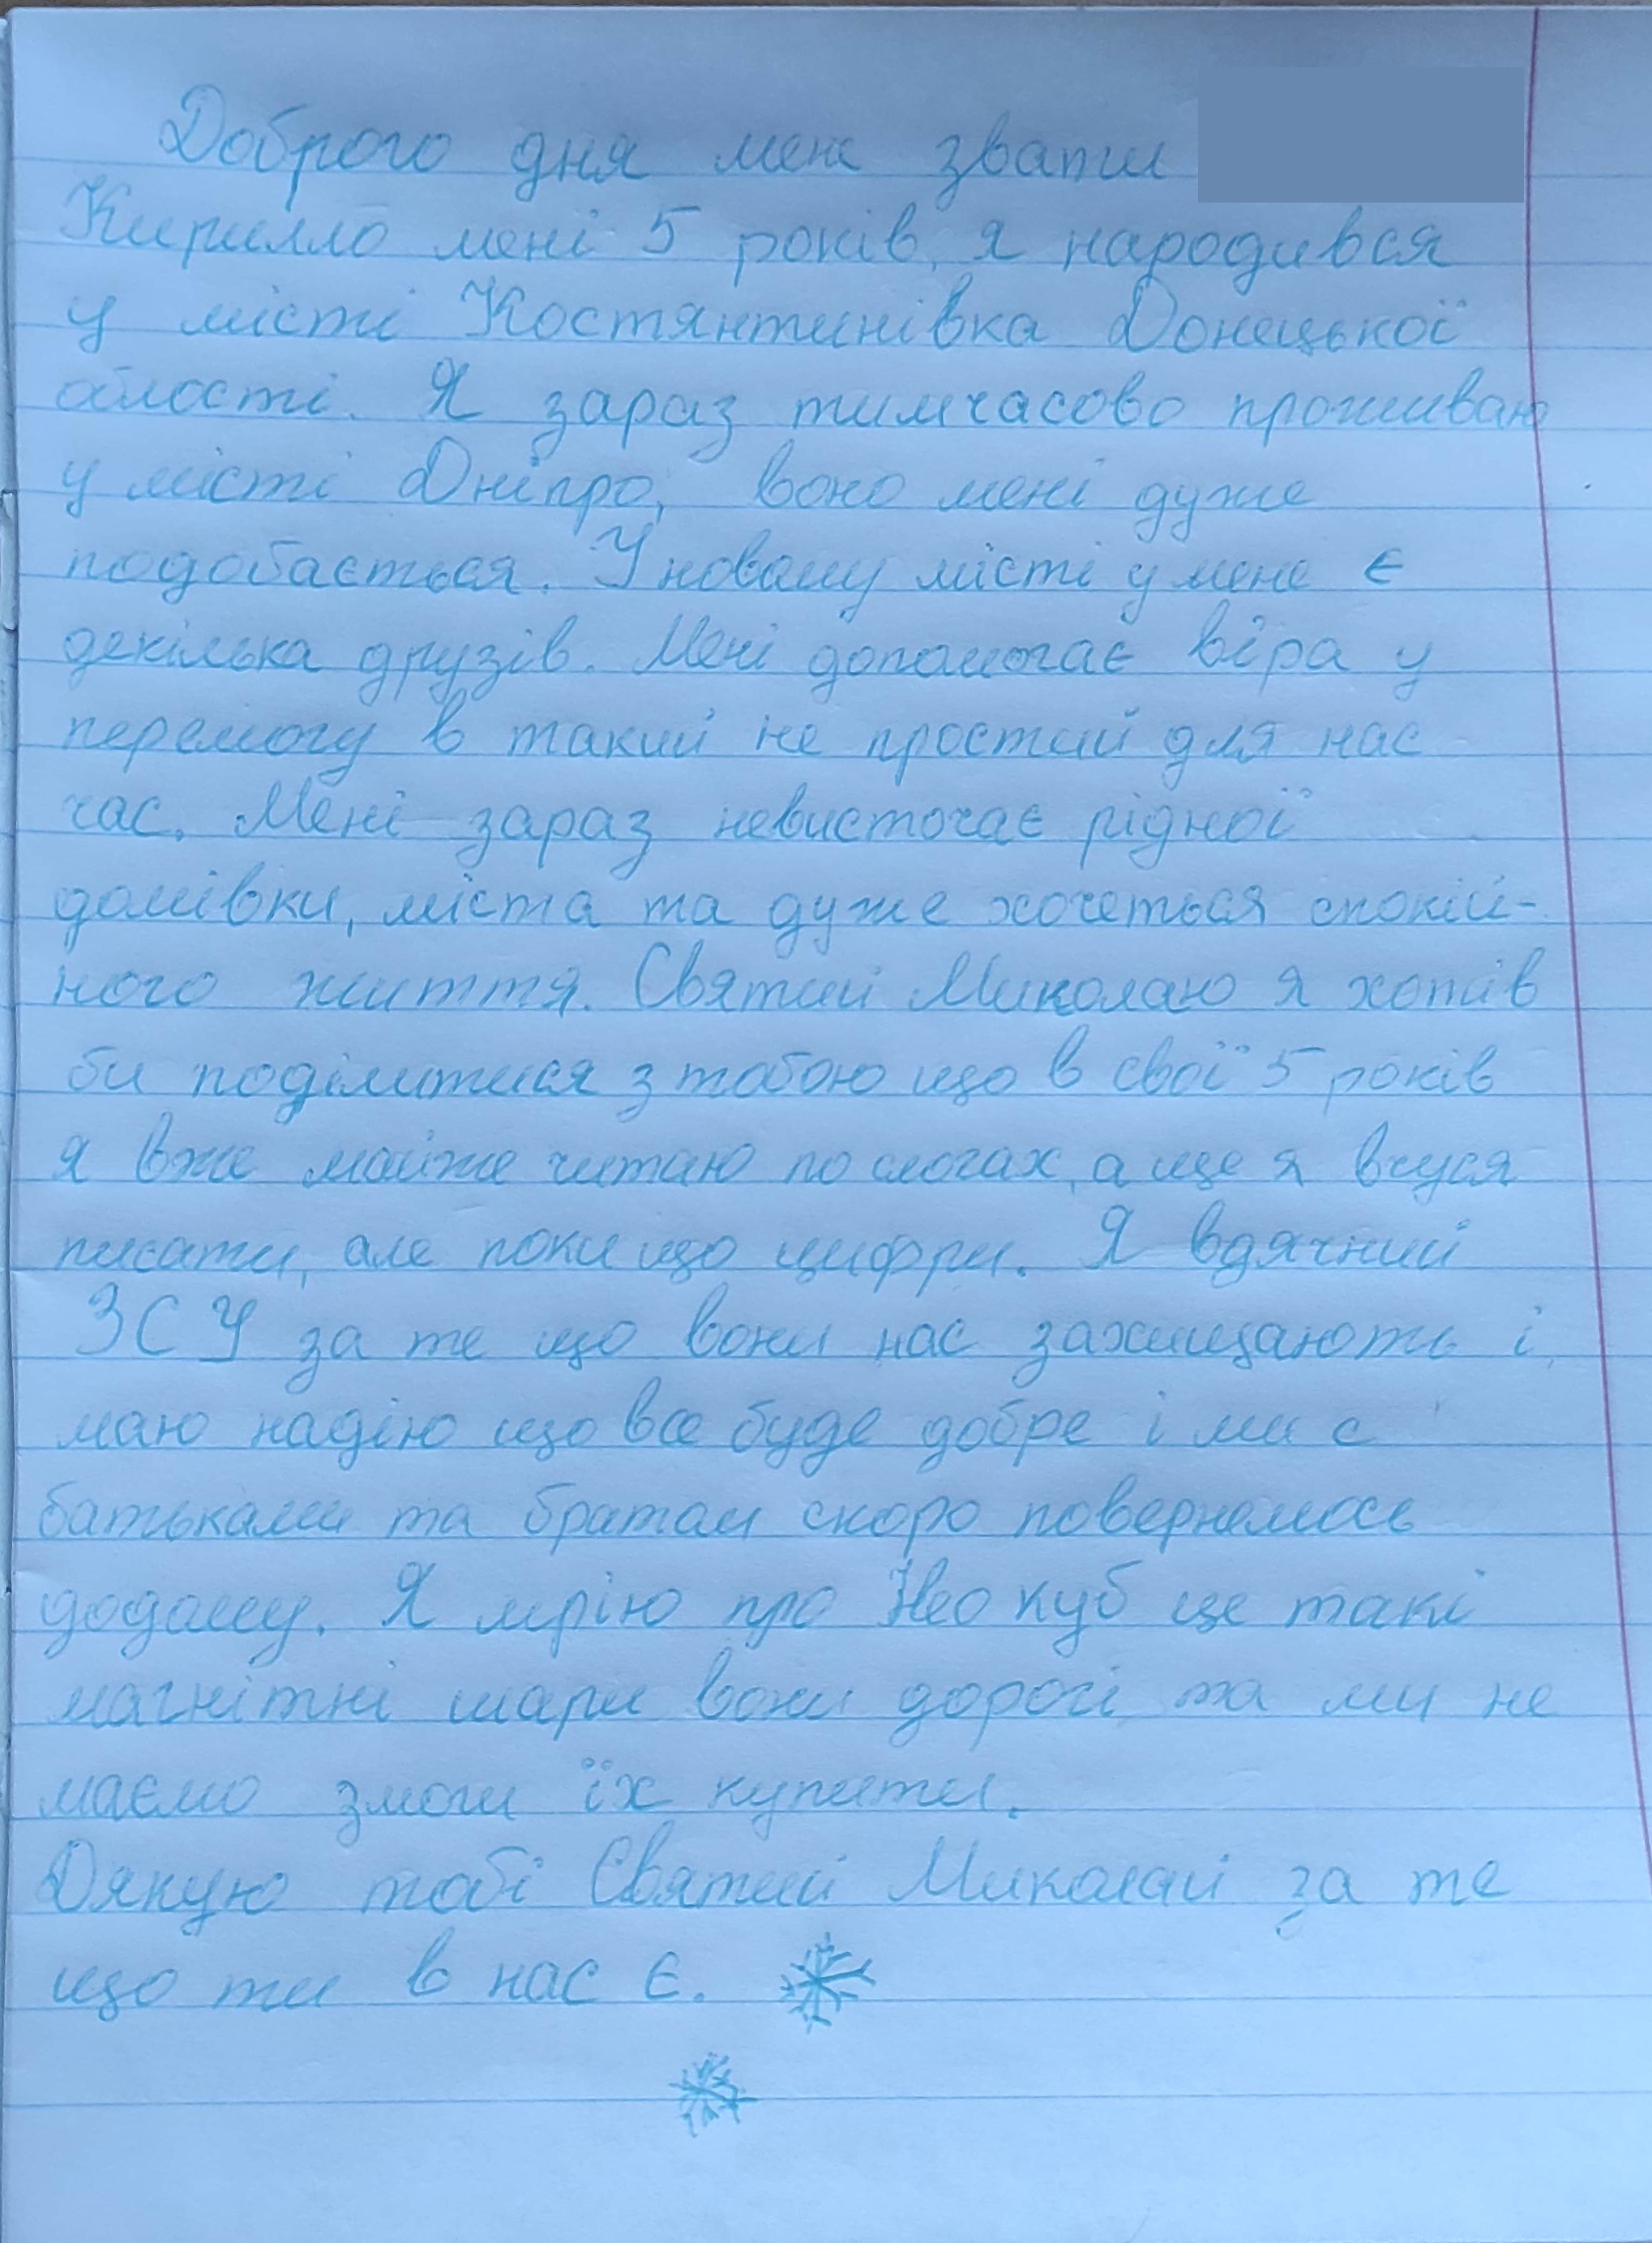 Доброго дня мене звати
Кирилло мені 5 років, я народився
у місті Костянтинівка Донецької
області. Я зараз тимчасово проживаю
у місті Дніпро, воно мені дуже
подобається. У новому місті у мене є
декілька друзів. Мені допомогає віра у
перемогу в такий не простий для нас
час. Мені зараз невисточає рідної
домівки, міста та дуже хочеться спокій-
ного життя. Святий Миколаю я хотів
би поділитися з тобою що в свої 5 років
я вже майже читаю по слогах, а ще я вчуся
писати, але поки що цифри. Я вдячний
ЗСУ за те що вони нас захищають і
маю надію що все буде добре і ми с
батьками та братом скоро повернемось
додому. Я мрію про Нео куб це такі
магнітні шари вони дорогі та ми не
маємо змоги їх купити.
Дякую тобі Святий Миколай за те
що ти в нас є.